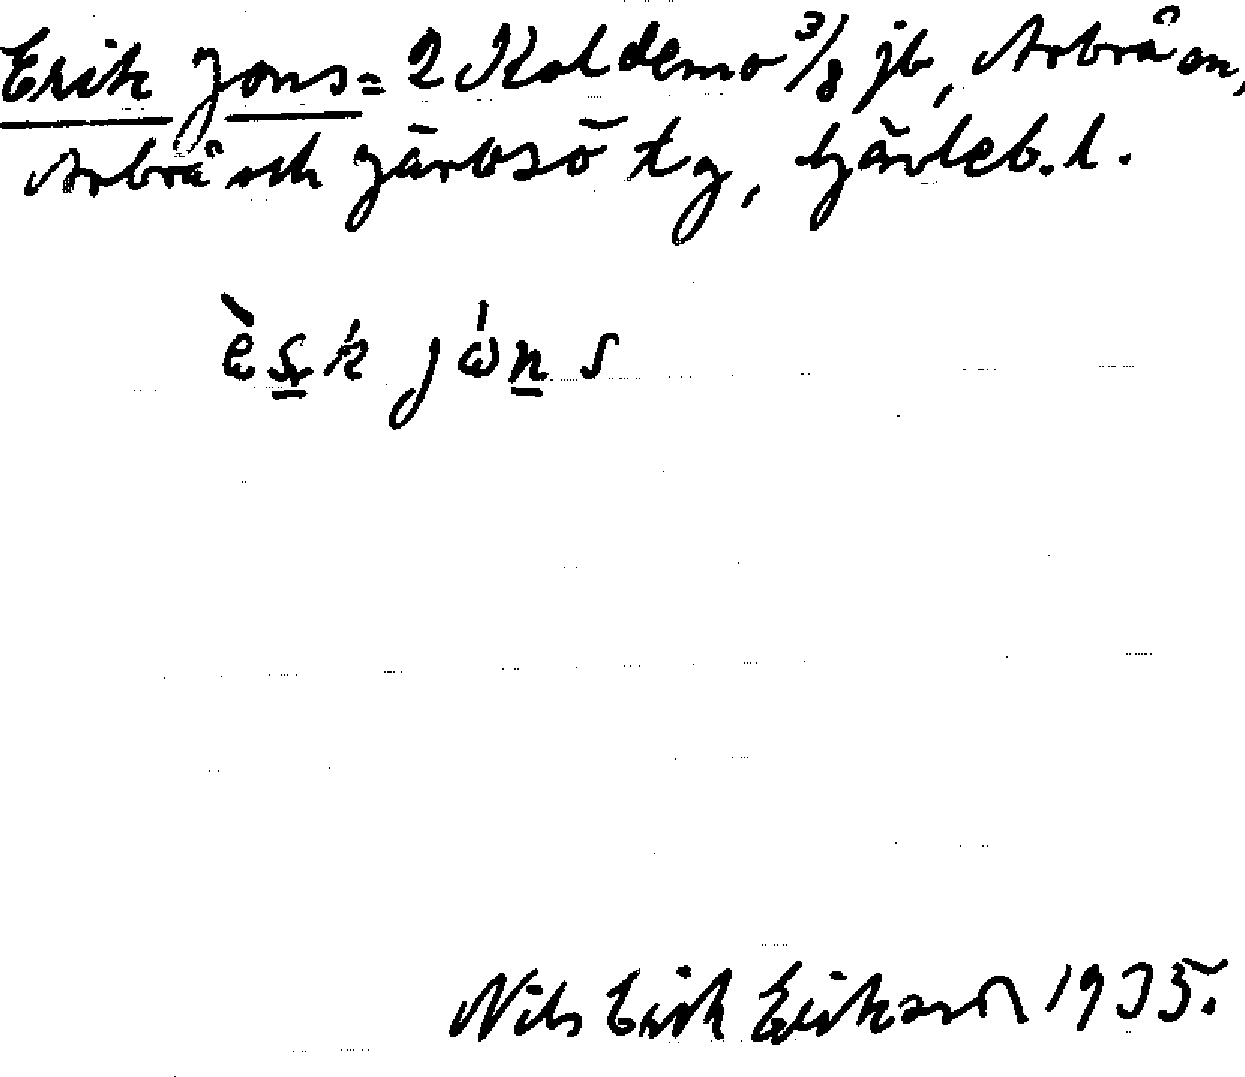 Erik Jons = 2 Koldemo 3/8 jb, Arbrå sn,
Arbrå och Järvsö tg, Gävleb. l.
èsk jóns
Nils Erik Eriksson 1935.